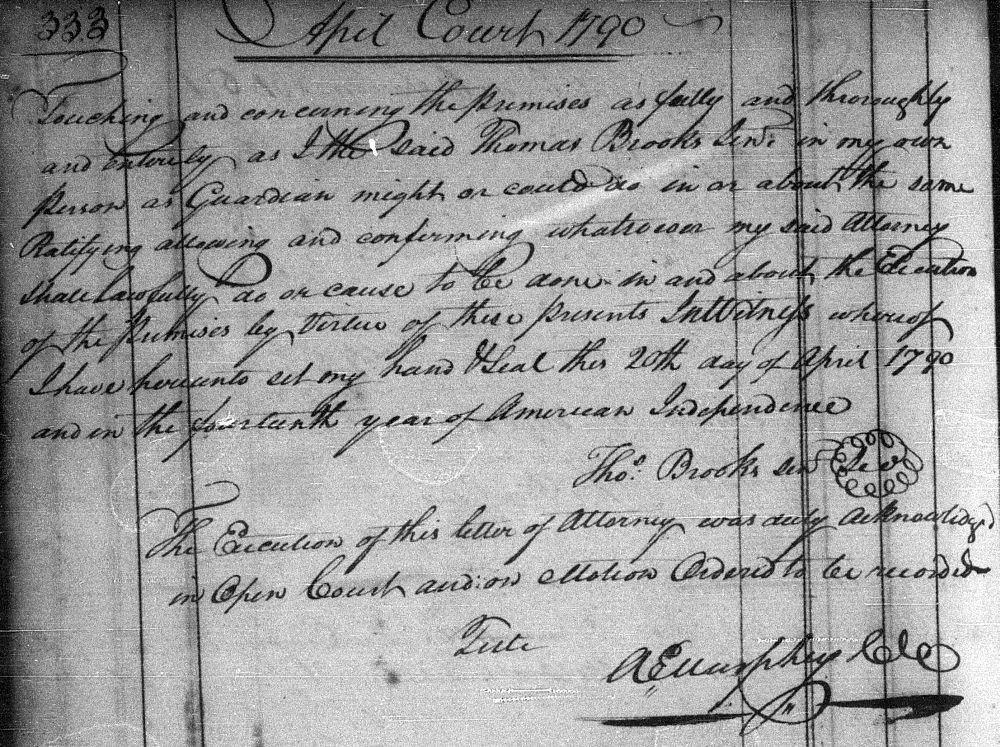 333
April Court 1790
Touching and concerning the premises as fully and thoroughly
and entirely as I the said Thomas Brooks Senr. in my own
person as Guardian might or could do in or about the same
Ratifying allowing and confirming whatsoever my said Attorney
shall Lawfully do or cause to be done in and about the Execution
of the Premises by Virtue of these presents In Witness whereof
I have hereunto set my hand & Seal this 20th day of April 1790
and in the fourteenth year of American Independence
Thos. Brooks senr
The Execution of this letter of Attorney was duly acknowledg'd
in Open Court and on Motion Ordered to be recorded
Teste